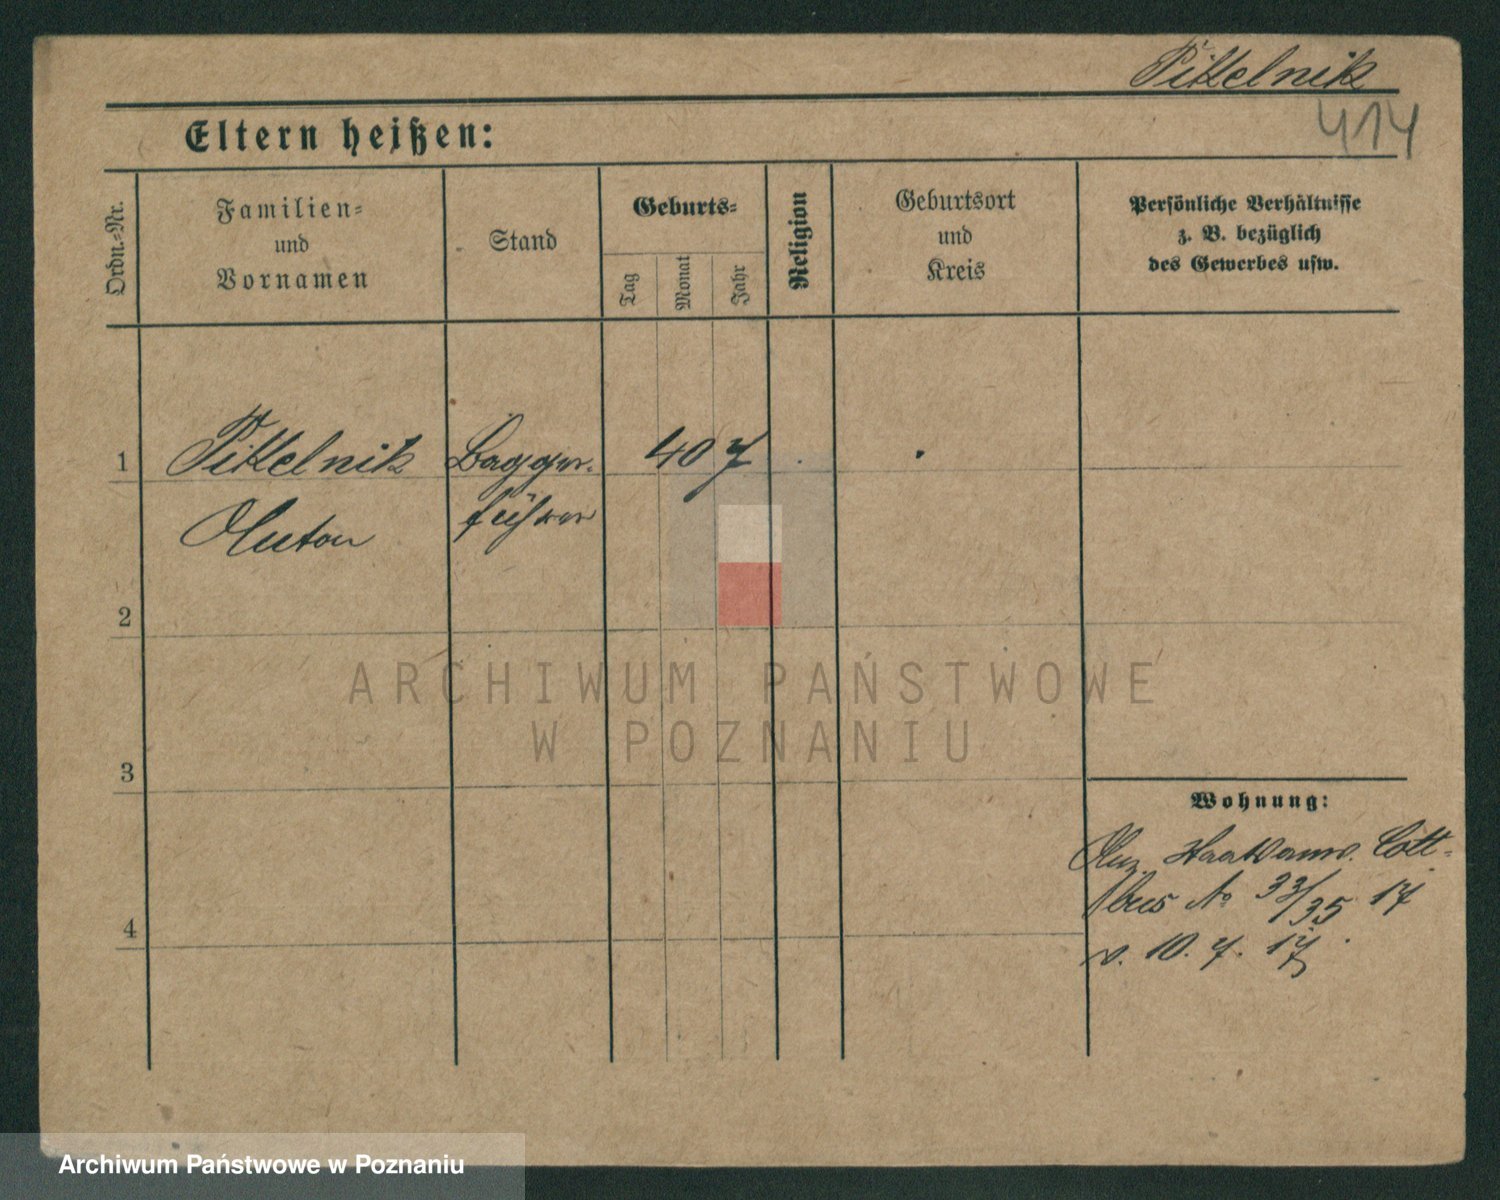 Pittelnik
414
Eltern heißen:
Ordn.-Nr.
Familien-
und
Vornamen
Stand
Geburts-
Tag
Monat
Jahr
Religion
Geburtsort
und
Kreis
Persönliche Verhältnisse
z. B. bezüglich
des Gewerbes usw.
1
Pittelnik
Bagger-
40 J
Anton
führer
2
ARCHIWUM PAŃSTWOWE
W POZNANIU
3
Wohnung:
Cott-
bus No 33/35 17
v. 10. 7. 17
4
Archiwum Państwowe w Poznaniu